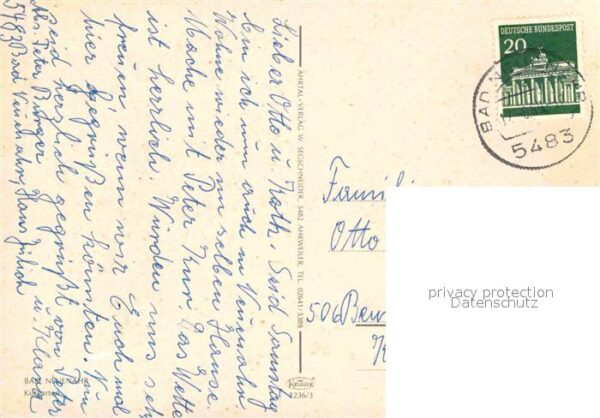 Lieber Otto u. Käth. Seid Sonntag
bin ich nun auch in Neuenahr
Wohne wieder im selben Hause.
Mache mit Peter Kur. Das Wetter
ist herrlich. Würden uns sehr
freuen wenn wir Euch mal
hier begrüßen könnten. Nun
seid herzlich gegrüßt von Peter
u. Klara
Abs. Peter
5483 Bad Neuenahr, Haus Jülich
BAD NEUENAHR
Kurgarten
AHRTAL-VERLAG W. SEGSCHNEIDER, 5482 AHRWEILER, TEL. 02641/5389
Krüger
1236/3
DEUTSCHE BUNDESPOST
20
BAD
5483
Famili
Otto
506 Ben
privacy protection
Datenschutz